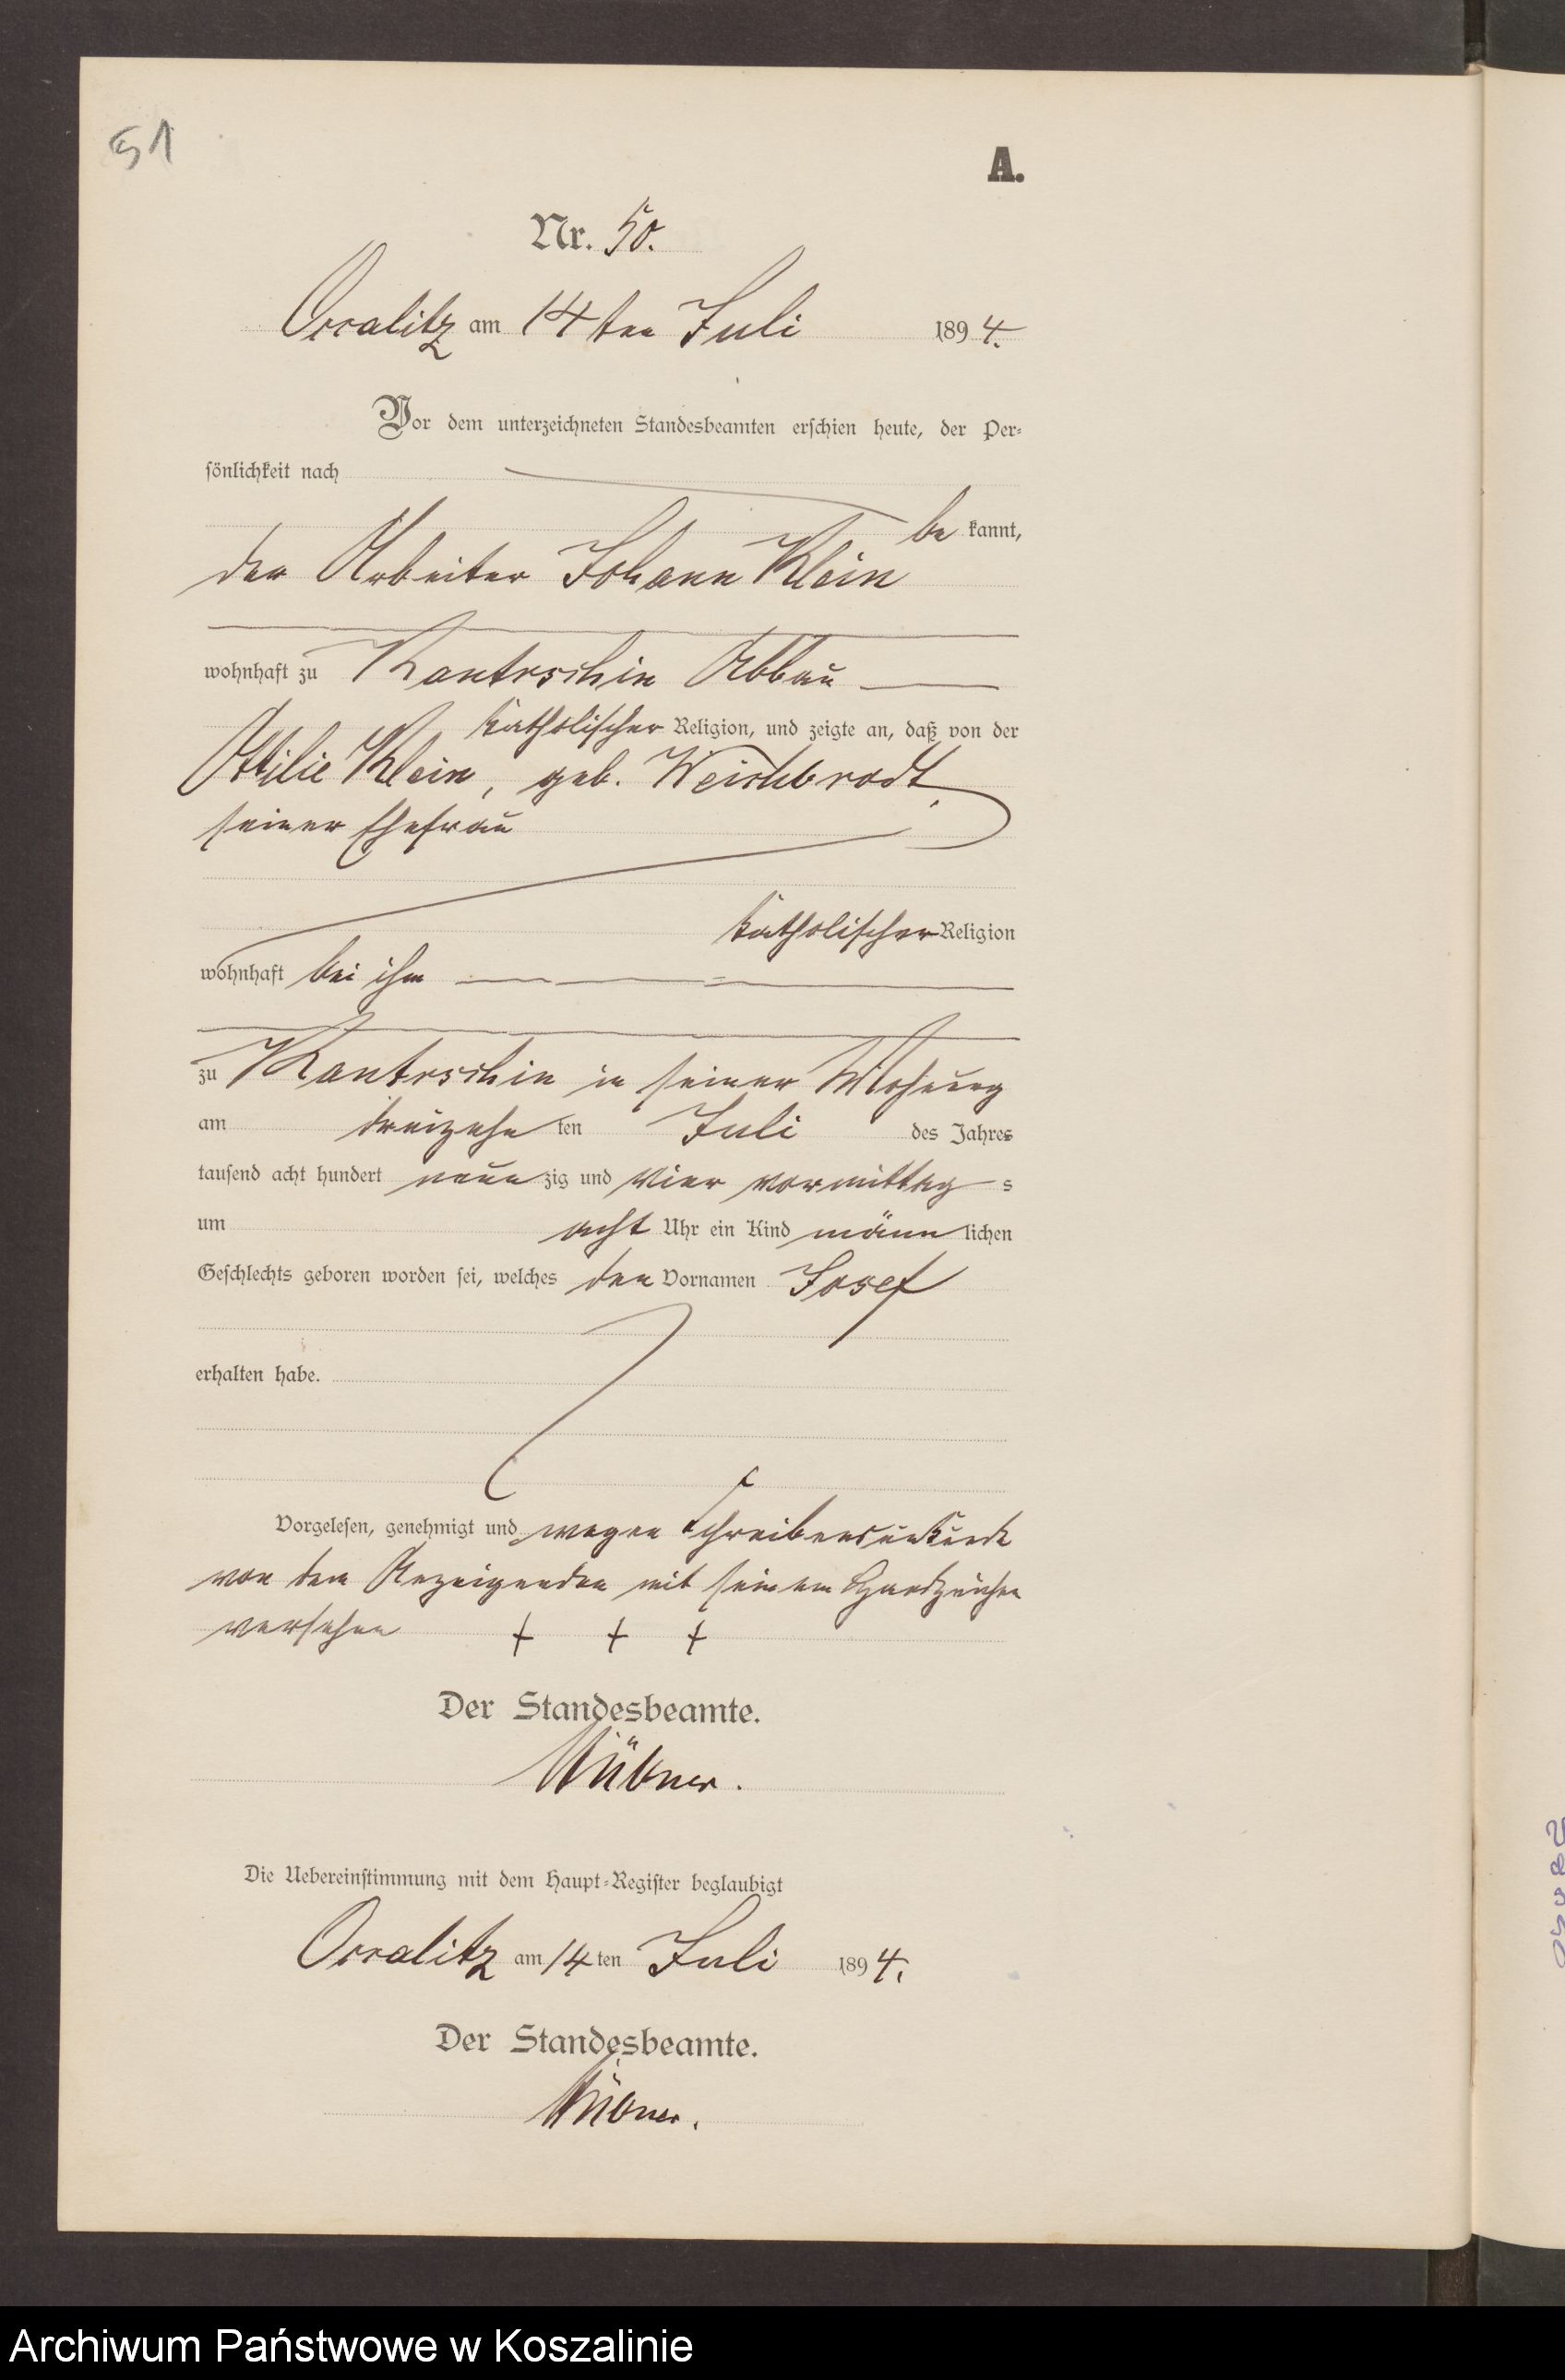 51
A.
Nr. 50.
am 14ten Juli 1894.
Vor dem unterzeichneten Standesbeamten erschien heute, der Per-
sönlichkeit nach
be kannt,
der Arbeiter Johann Klein
wohnhaft zu Kantrschin Abbau
katholischer Religion, und zeigte an, daß von der
Ottilie Klein, geb. Weishbrodt,
seiner Ehefrau
katholischer Religion
wohnhaft bei ihm
zu Kantrschin in seiner Wohnung
am dreizehn ten Juli des Jahres
tausend acht hundert neun zig und vier vormittag s
um acht Uhr ein Kind männ lichen
Geschlechts geboren worden sei, welches den Vornamen Josef
erhalten habe.
Vorgelesen, genehmigt und wegen Schreibensunkunde
von dem Anzeigenden mit seinem Handzeichen
versehen + + +
Der Standesbeamte.
Die Uebereinstimmung mit dem Haupt-Register beglaubigt
am 14 ten Juli 1894.
Der Standesbeamte.
Archiwum Państwowe w Koszalinie